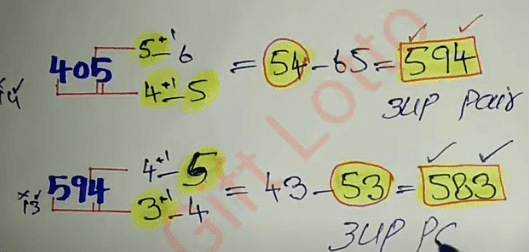 5+1-6
405 = 54-65= 594
4+1-5
3UP Pair
4+1-5
594 = 43-53= 583
3+1-4
3UP PC
Gift Loto